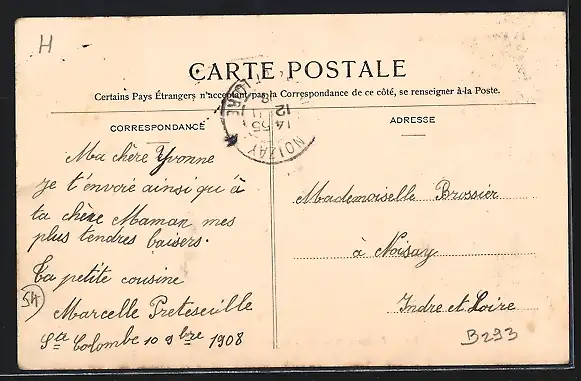 H
CARTE POSTALE
Certains Pays Étrangers n'acceptant pas la Correspondance de ce côté, se renseigner à la Poste.
CORRESPONDANCE
Ma chère Yvonne
je t'envoie ainsi qu'à
ta chère Maman mes
plus tendres baisers.
Ta petite cousine
Marcelle Preteseille
Ste Colombe 10 9bre 1908
54
NOIZAY
14 55
12
ADRESSE
Mademoiselle Brossier
à Noisay
Indre et Loire
B293